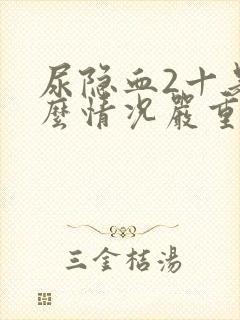 尿隐血2十是
麽情况嚴重
三金桔湯